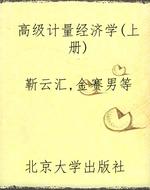 高级计量经济学(上
册)
靳云汇,金赛男等
北京大学出版社